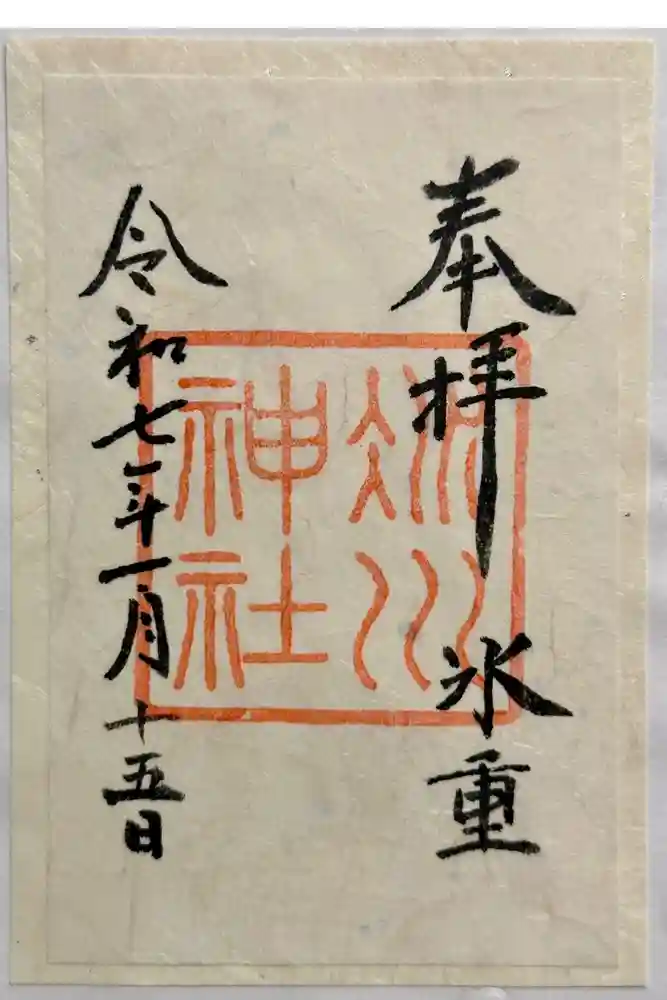 奉拝 氷重
令和七年一月十五日
氷川
神社